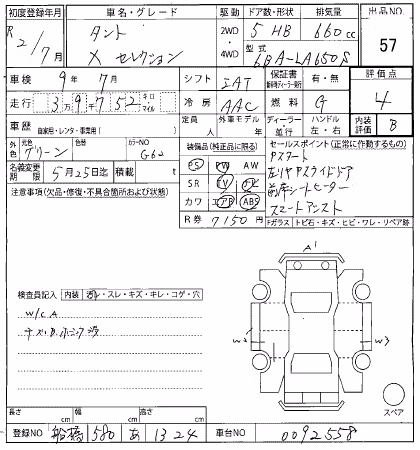 初度登録年月 車名・グレード 駆動 ドア数・形状 排気量 出品NO.
R 2/7月 タント X セレクション 2WD 4WD 5 HB 660cc 57
型式 6BA-LA650S
車検 9年 7月 シフト IAT 保証書 有・無 評価点
走行 3万9千752 キロ マイル 冷房 AAC 燃料 G 4
車歴 自家用・レンタ・事業用( ) 定員 人 外車モデル 年 ディーラー 並行 ハンドル 左・右 内装評価 B
外色 元色 グリーン 色替 カラーNO G62 装備品(純正品に限る) セールスポイント(正常に作動するもの)
名義変更期限 5月25日迄 積載 t PS PW AW
Pスタート
注意事項(欠品・修復・不具合箇所および状態) SR TV ナビ
左リヤPスライドドア
カワ エアB ABS
前席シートヒーター
R券 7150円
スマートアシスト
Fガラス トビ石・キズ・ヒビ・ワレ・リペア跡
検査員記入 内装 汚レ・スレ・キズ・キレ・コゲ・穴
A1
W/C A
W2 W3
スペア
長さ cm 幅 cm 高さ cm
登録NO 船橋 580 あ 1324 車台NO 0092558